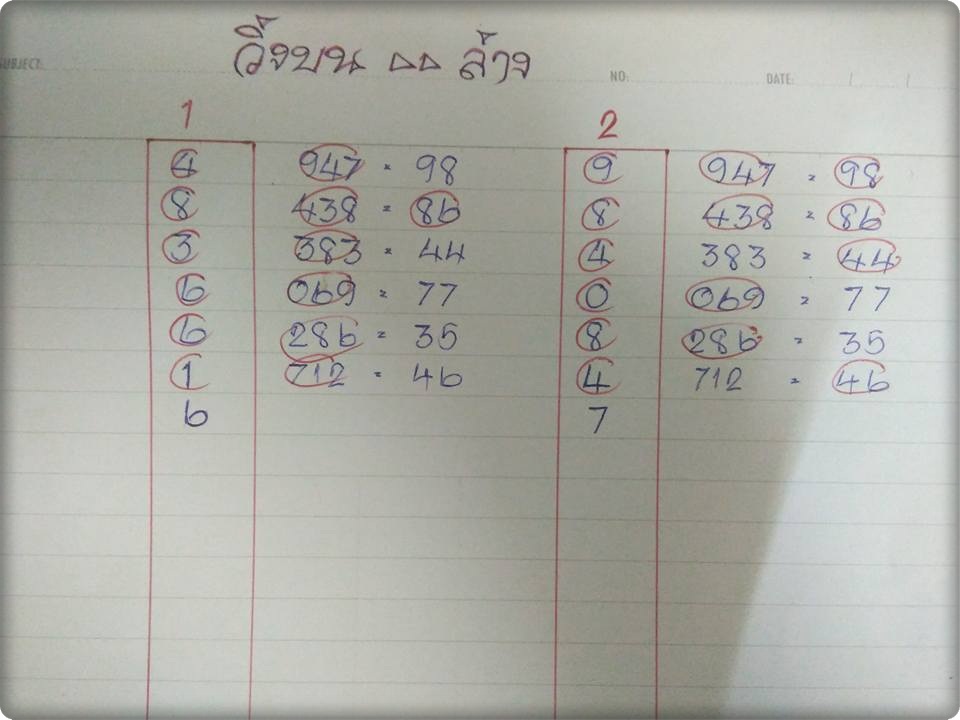 วิ่งบน △△ ล่าง
SUBJECT: NO: DATE: / /
1 2
4 947 = 98 9 947 = 98
8 438 = 86 8 438 = 86
3 383 = 44 4 383 = 44
6 069 = 77 0 069 = 77
6 286 = 35 8 286 = 35
1 712 = 46 4 712 = 46
6 7